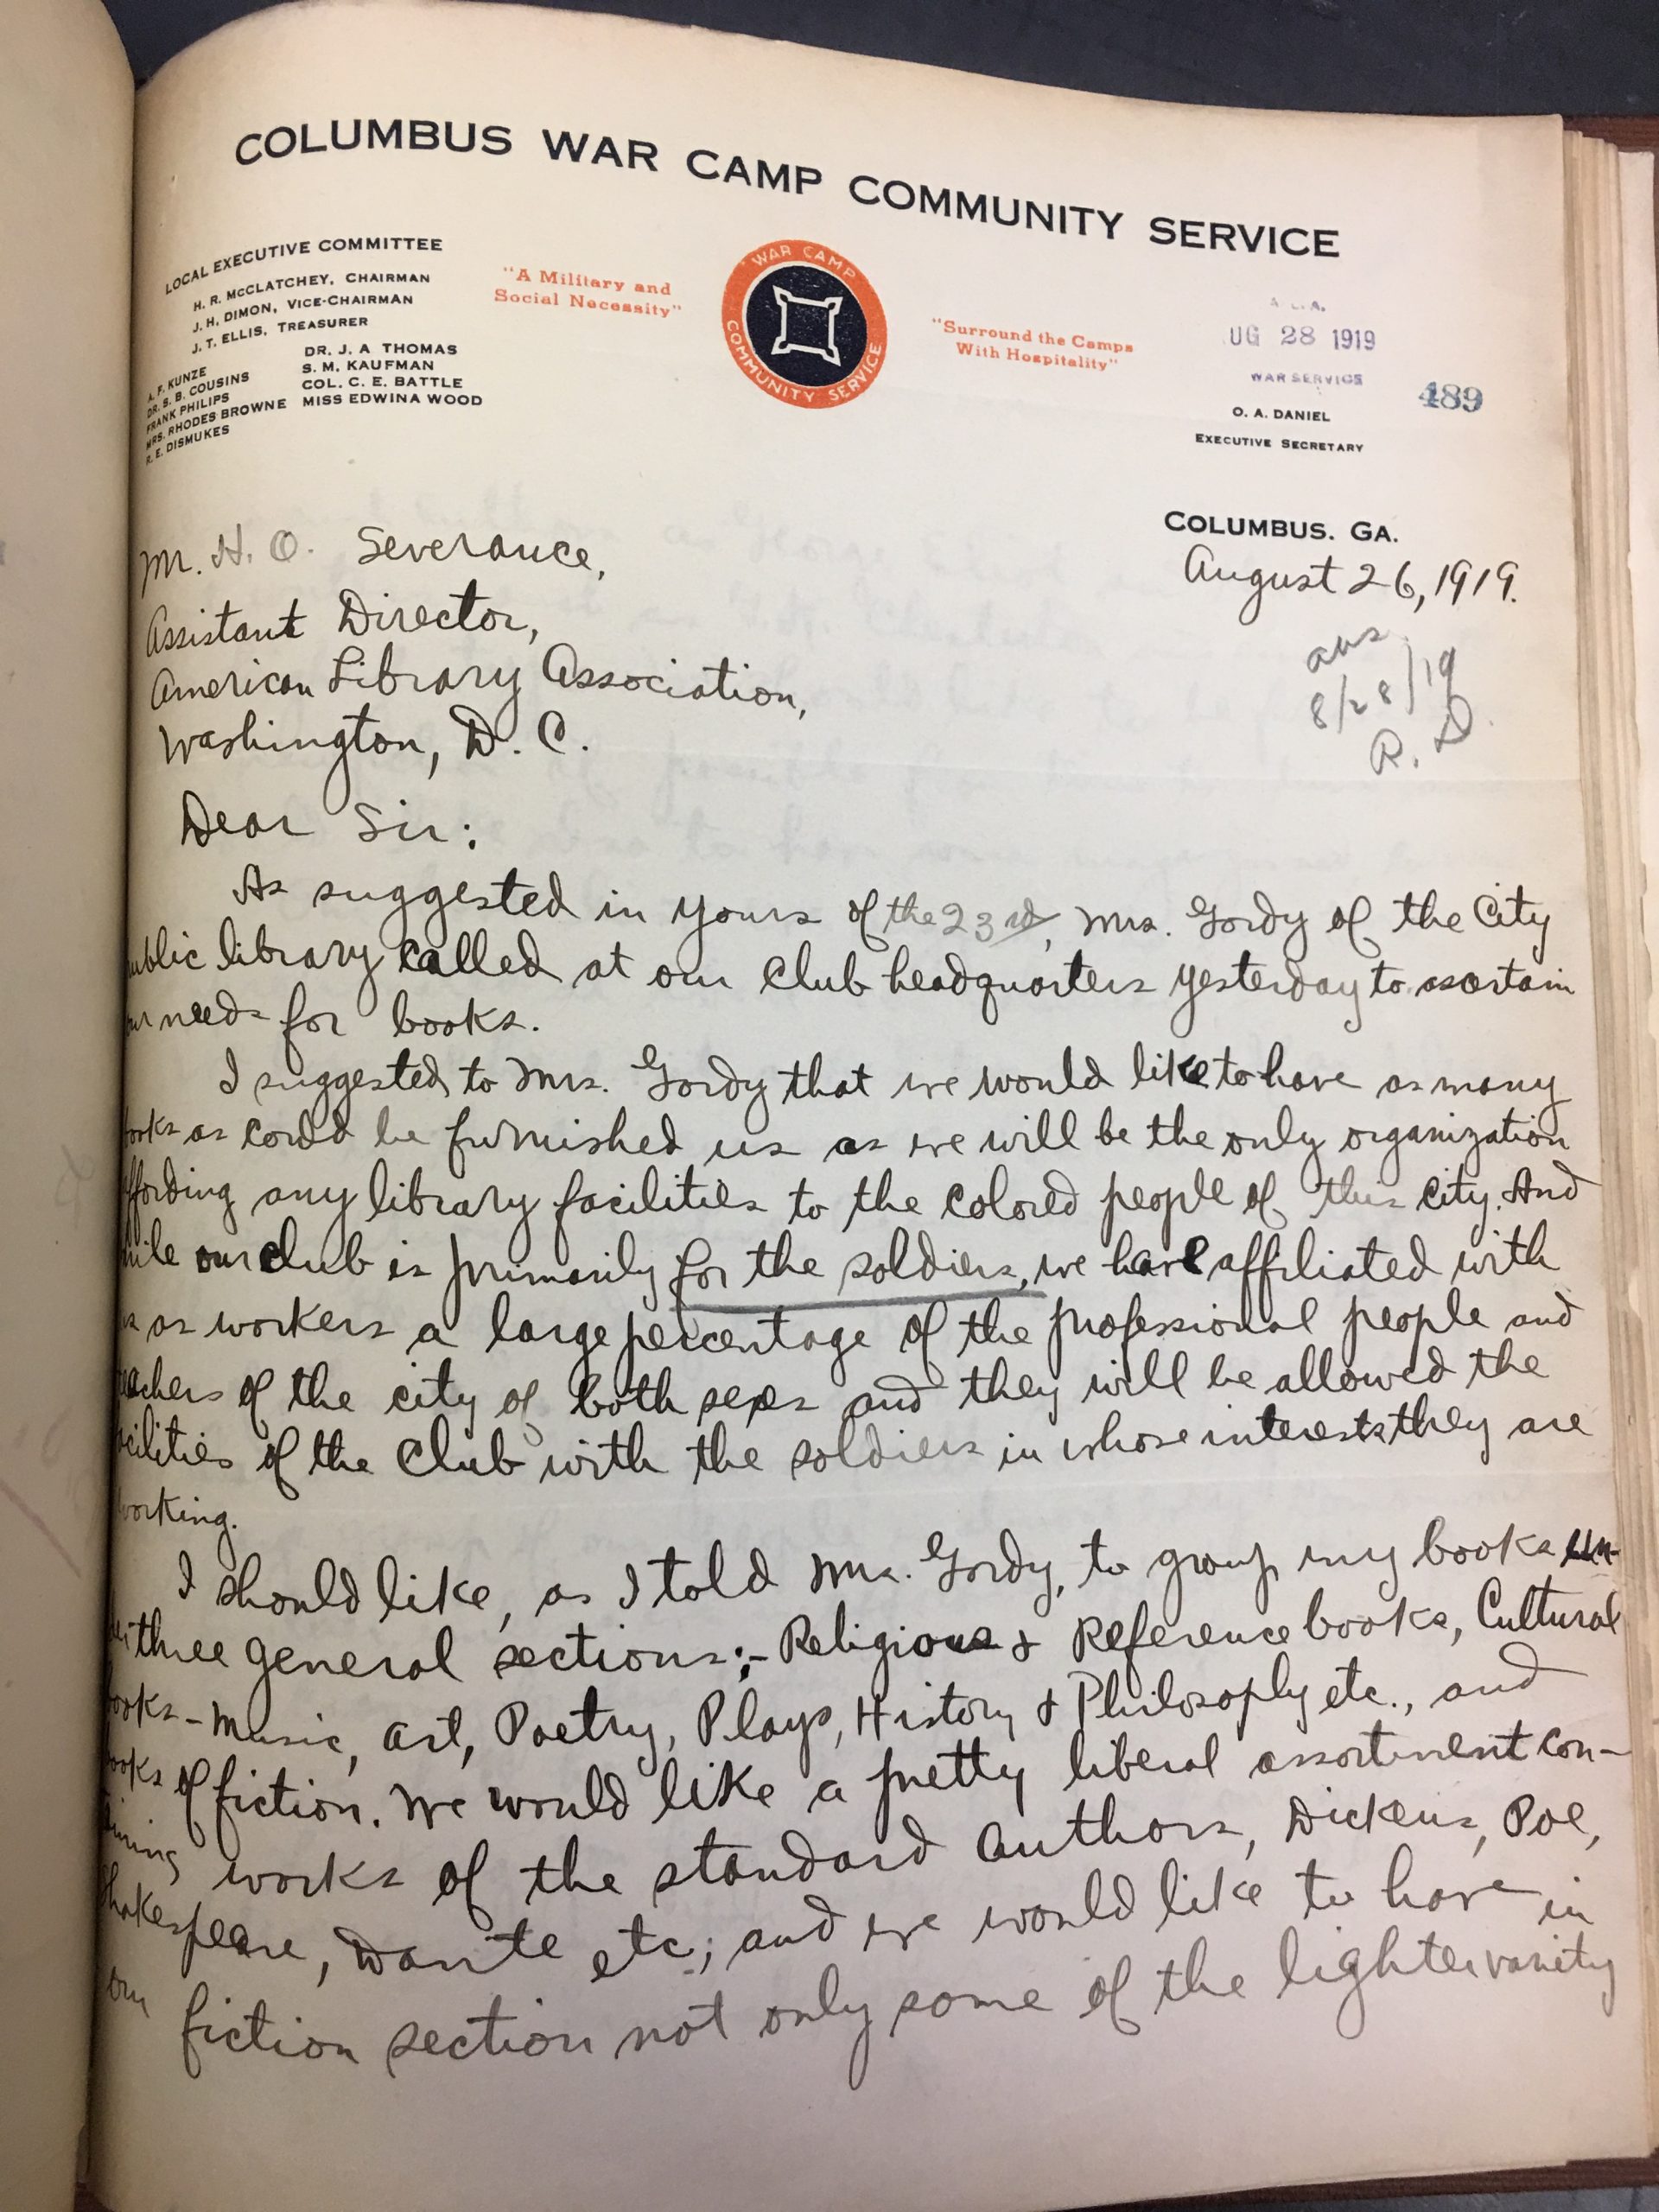 COLUMBUS WAR CAMP COMMUNITY SERVICE
LOCAL EXECUTIVE COMMITTEE
H. R. McCLATCHEY, CHAIRMAN
J. H. DIMON, VICE-CHAIRMAN
J. T. ELLIS, TREASURER
DR. J. A THOMAS
S. M. KAUFMAN
COL. C. E. BATTLE
MISS EDWINA WOOD
F. KUNZE
DR. S. B. COUSINS
FRANK PHILIPS
MRS. RHODES BROWNE
R. E. DISMUKES
"A Military and
Social Necessity"
WAR CAMP
COMMUNITY SERVICE
"Surround the Camps
With Hospitality"
A. L. A.
UG 28 1919
WAR SERVICE
489
O. A. DANIEL
EXECUTIVE SECRETARY
COLUMBUS. GA.
August 26, 1919.
ans
8/28/19
R. D.
Mr. H. O. Severance,
Assistant Director,
American Library Association,
Washington, D. C.
Dear Sir:
As suggested in yours of the 23rd, Mrs. Gordy of the City
ublic library called at our Club headquarters yesterday to ascertain
ur needs for books.
I suggested to Mrs. Gordy that we would like to have as many
ooks as could be furnished us as we will be the only organization
ffording any library facilities to the colored people of this city. And
hile our club is primarily for the soldiers, we have affiliated with
us as workers a large percentage of the professional people and
eachers of the city of both sexes and they will be allowed the
cilities of the Club with the soldiers in whose interests they are
working.
I should like, as I told Mrs. Gordy, to group my books un-
der three general sections:- Religious & Reference books, Cultural
books - Music, Art, Poetry, Plays, History & Philosophy etc., and
books of fiction. We would like a pretty liberal assortment con-
aining works of the standard authors, Dickens, Poe,
Shakespeare, Dante etc; and we would like to have in
our fiction section not only some of the lighter vanity